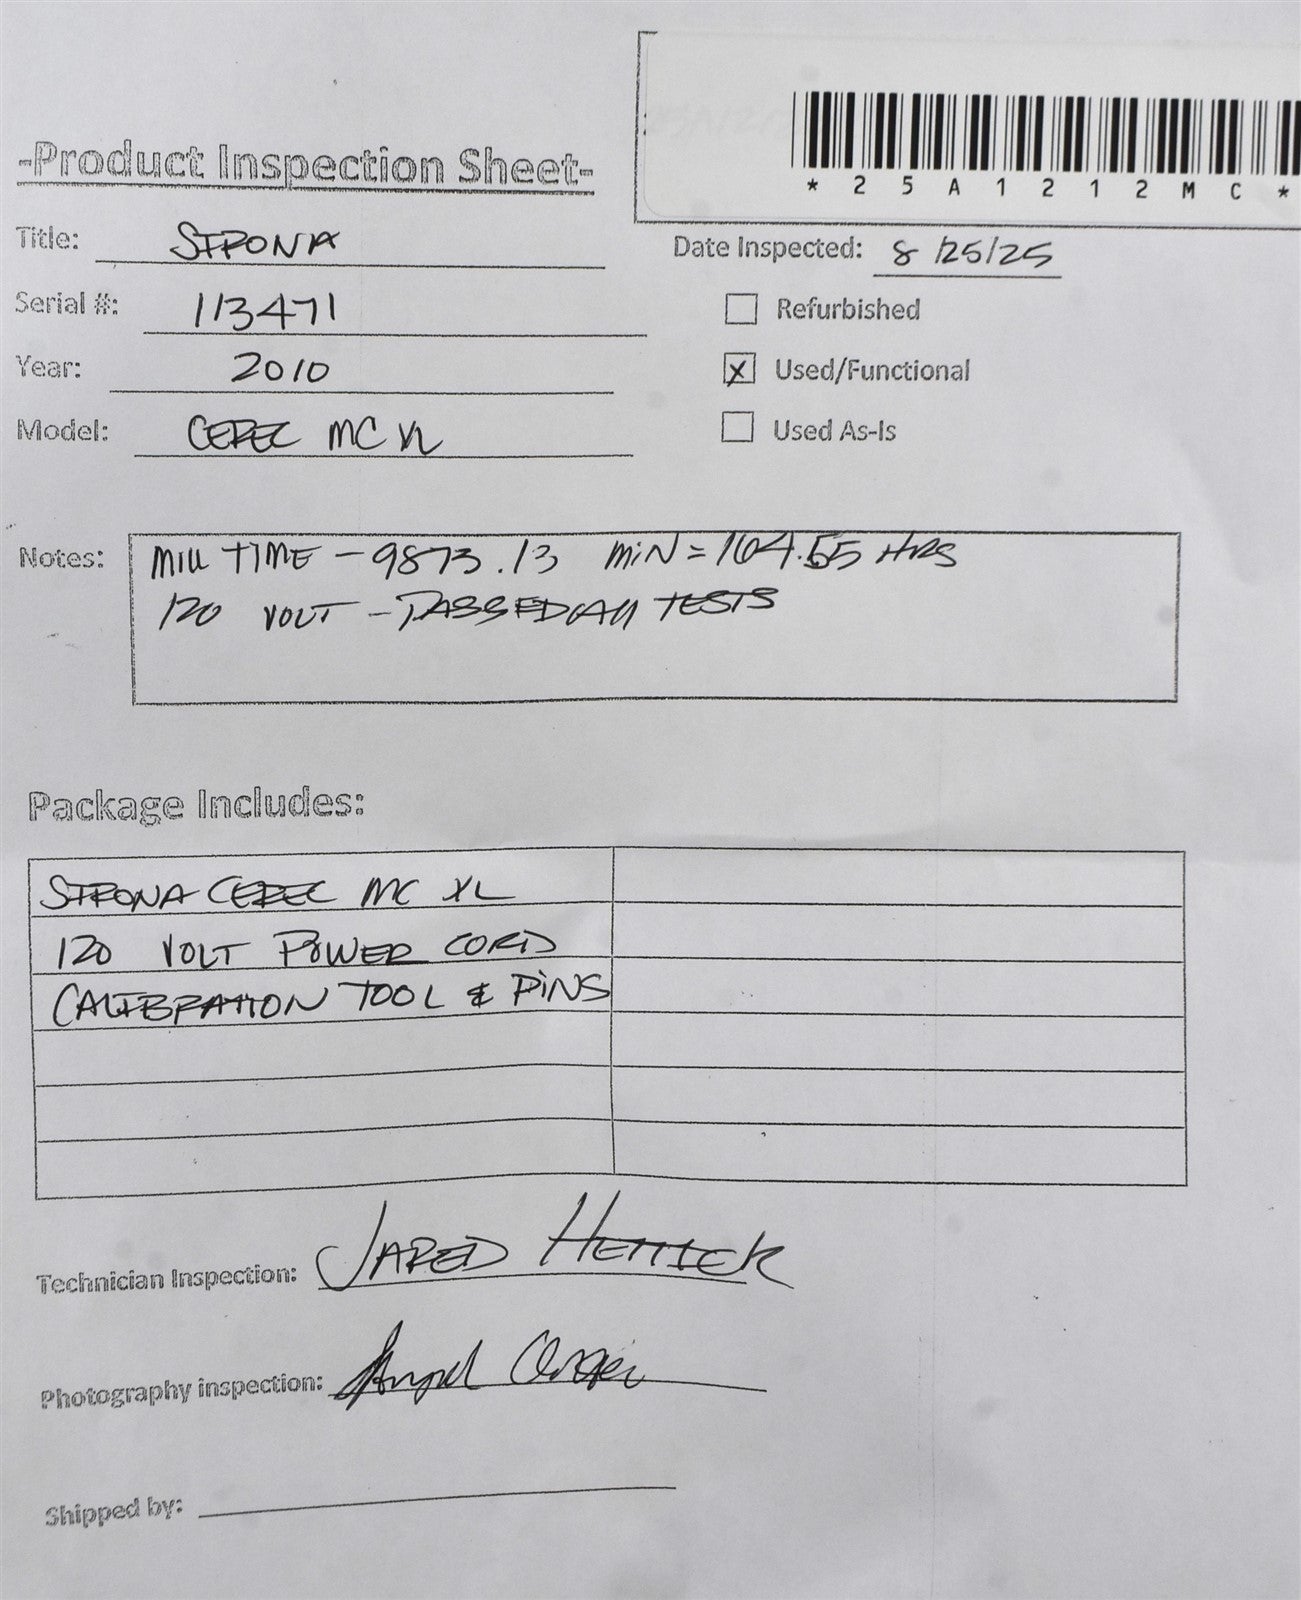 *25A1212MC*
-Product Inspection Sheet-
Title: SIRONA
Date Inspected: 8/25/25
Serial #: 113471
Refurbished
Year: 2010
X Used/Functional
Model: CEREC MC XL
Used As-Is
Notes: MILL TIME - 9873.13 MIN = 164.55 HRS
120 VOLT - PASSED ALL TESTS
Package Includes:
SIRONA CEREC MC XL
120 VOLT POWER CORD
CALIBRATION TOOL & PINS
Technician Inspection: JARED HETTICK
Photography inspection:
Shipped by: